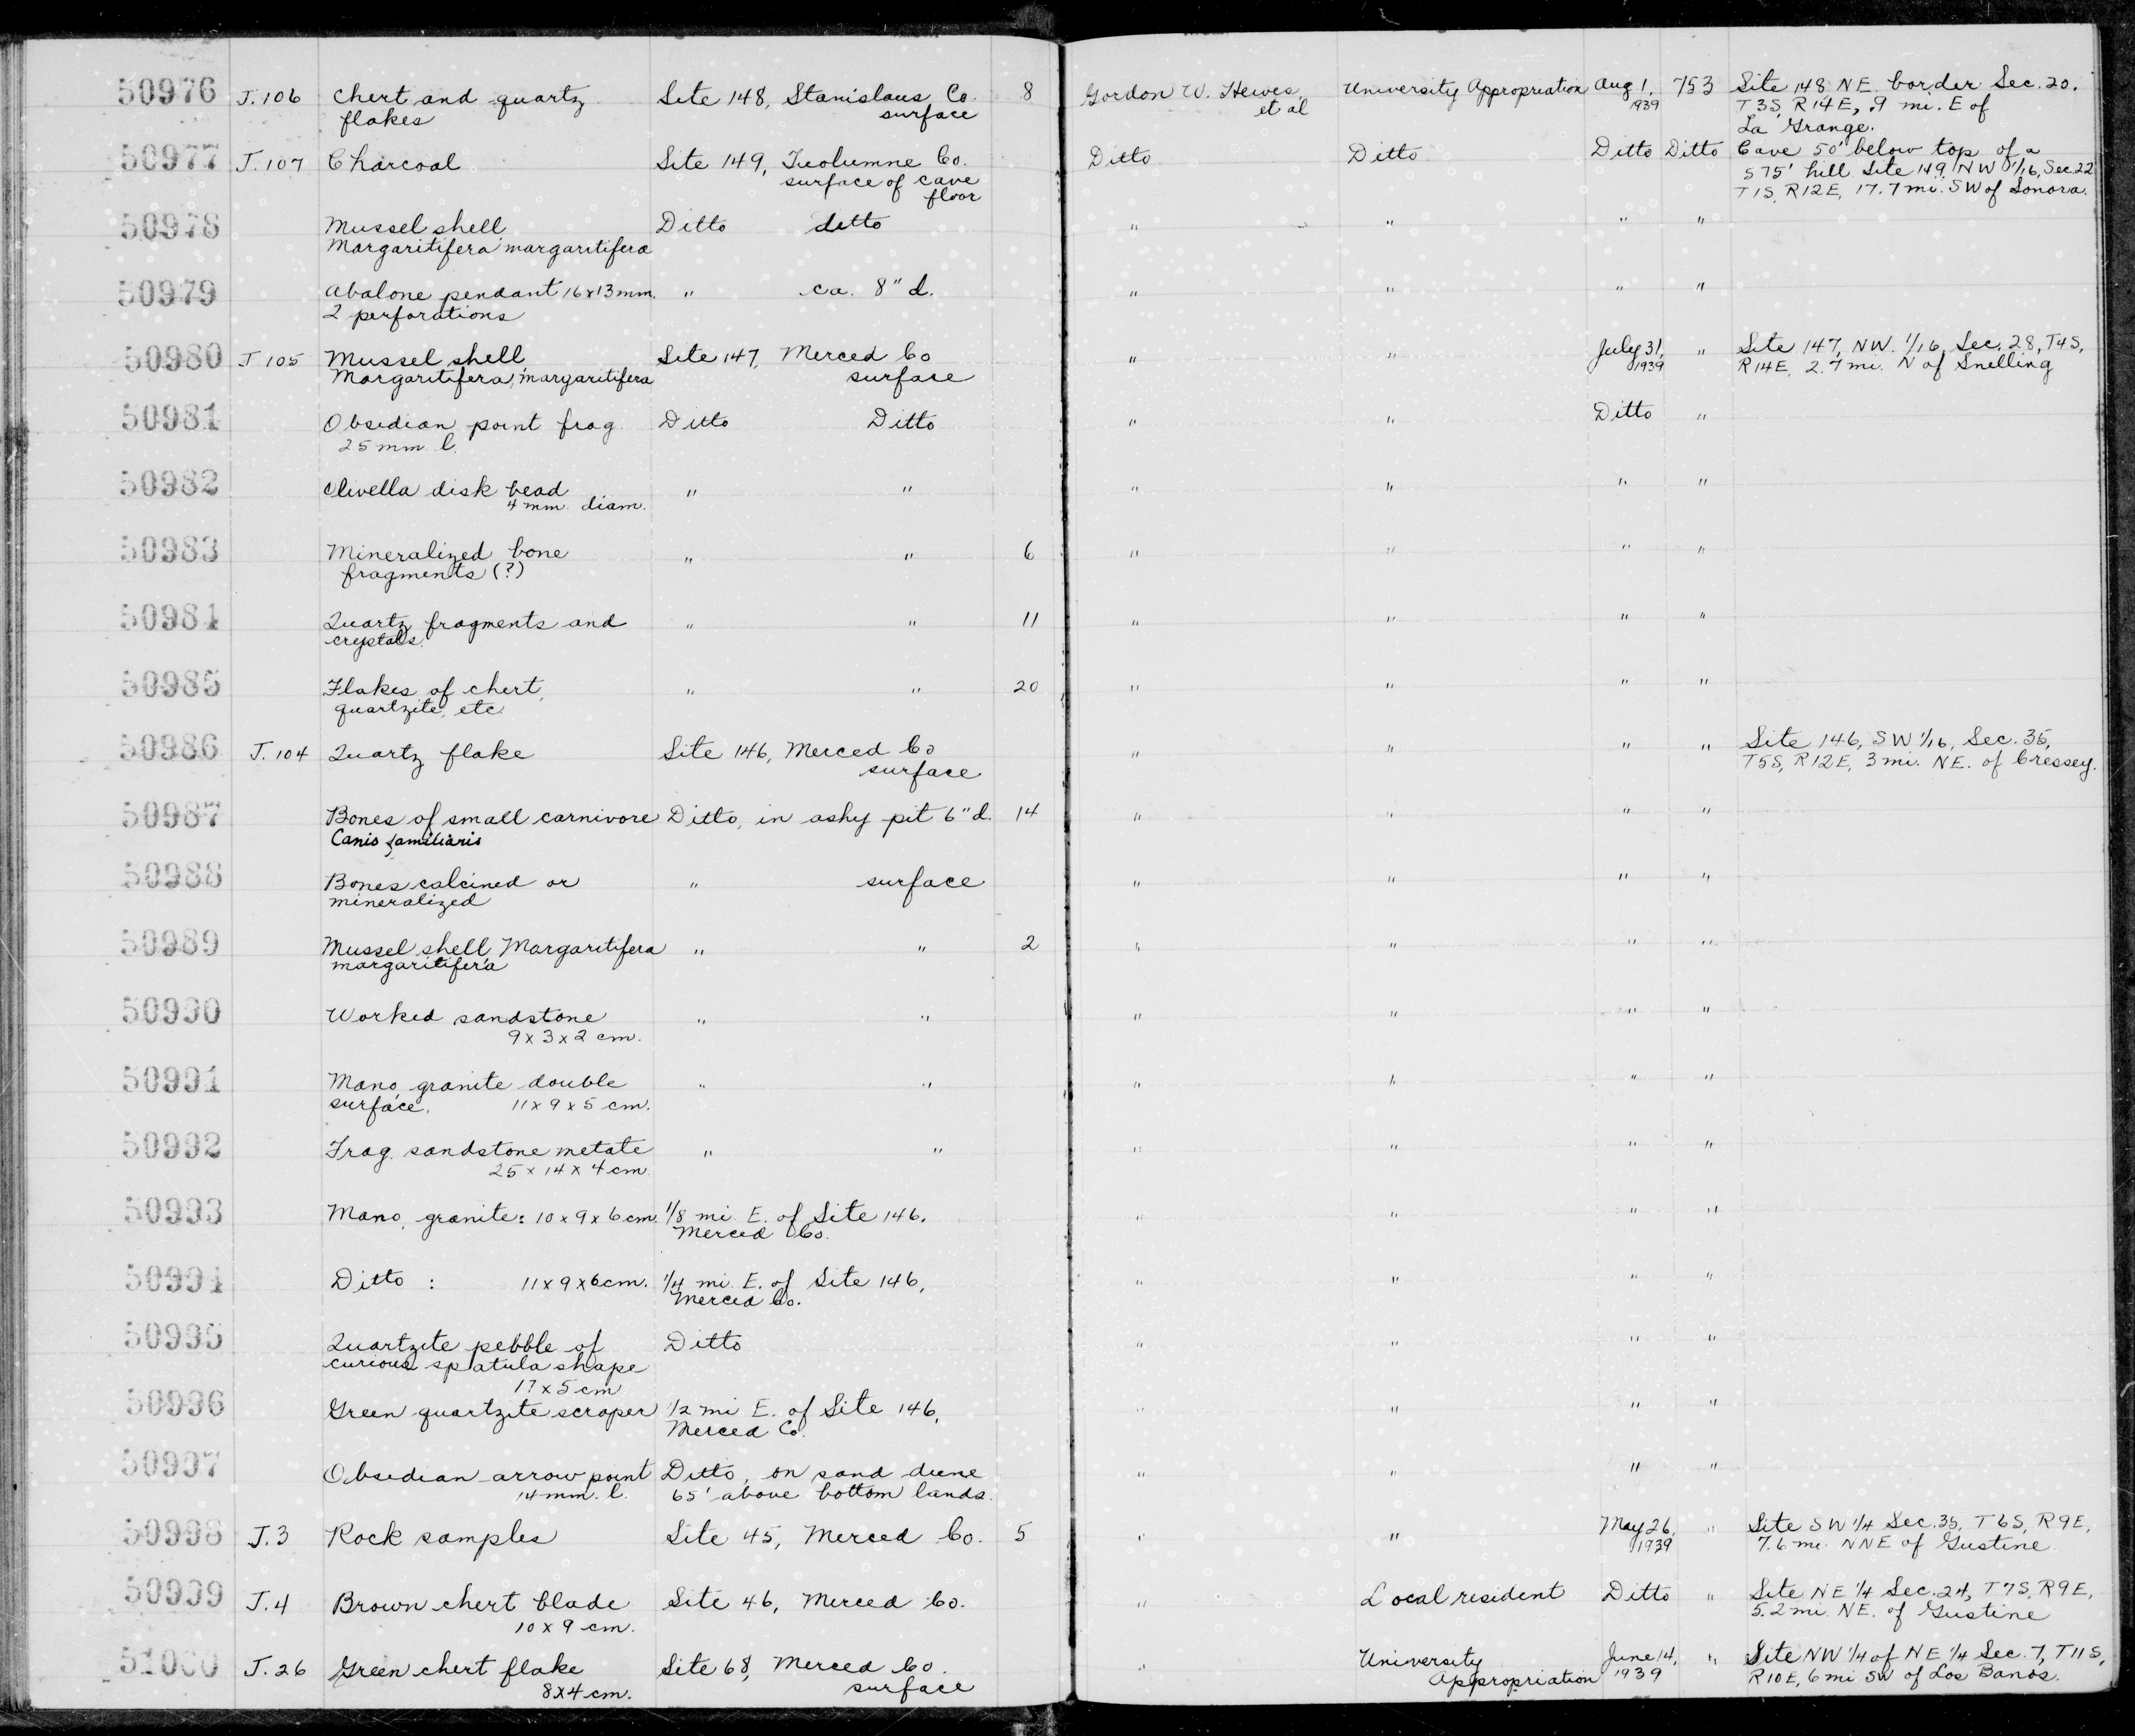 50976 J.106 Chert and quartz Site 148, Stanislaus Co. 8 Gordon W. Hewes, University Appropriation Aug 1, 753 Site 148 NE border Sec. 20.
flakes surface et al 1939 T3S, R14E, .9 mi. E of
La Grange.
50977 J.107 Charcoal Site 149, Tuolumne Co. Ditto Ditto Ditto Ditto Cave 50' below top of a
surface of cave 575' hill. Site 149, NW 1/16, Sec. 22
floor T1S, R12E, 17.7 mi. SW of Sonora.
50978 Mussel shell, Ditto ditto " " " "
Margaritifera margaritifera
50979 Abalone pendant 16x13mm. " ca. 8" d. " " " "
2 perforations
50980 J 105 Mussel shell, Site 147, Merced Co " " July 31, " Site 147, NW. 1/16, Sec. 28, T4S,
Margaritifera margaritifera surface 1939 R14E, 2.7 mi. N of Snelling
50981 Obsidian point frag. Ditto Ditto " " Ditto "
25 mm l.
50982 Olivella disk bead " " " " " "
4 mm. diam.
50983 Mineralized bone " " 6 " " " "
fragments (?)
50984 Quartz fragments and " " 11 " " " "
crystals.
50985 Flakes of chert, " " 20 " " " "
quartzite, etc
50986 J.104 Quartz flake Site 146, Merced Co " " " " Site 146, SW 1/16, Sec. 35,
surface T5S, R12E, 3 mi. NE. of Cressey.
50987 Bones of small carnivore Ditto, in ashy pit 6" d. 14 " " " "
Canis familiaris
50988 Bones calcined or " surface " " " "
mineralized
50989 Mussel shell, Margaritifera " " 2 " " " "
margaritifera
50990 Worked sandstone " " " " " "
9 x 3 x 2 cm.
50991 Mano, granite double " " " " " "
surface. 11 x 9 x 5 cm.
50992 Frag. sandstone metate " " " " " "
25 x 14 x 4 cm.
50993 Mano, granite: 10 x 9 x 6 cm. 1/8 mi. E. of Site 146, " " " "
Merced Co.
50994 Ditto : 11 x 9 x 6 cm. 1/4 mi. E. of Site 146, " " " "
Merced Co.
50995 Quartzite pebble of Ditto " " " "
curious spatula shape
17 x 5 cm
50996 Green quartzite scraper 1/2 mi E. of Site 146, " " " "
Merced Co.
50997 Obsidian arrow point Ditto, on sand dune " " " "
14 mm. l. 65' above bottom lands.
50998 J.3 Rock samples Site 45, Merced Co. 5 " " May 26, " Site SW 1/4 Sec. 35, T6S, R9E,
1939 7.6 mi. NNE of Gustine
50999 J.4 Brown chert blade Site 46, Merced Co. " Local resident Ditto " Site NE 1/4 Sec. 24, T7S, R9E,
10 x 9 cm. 5.2 mi. NE. of Gustine
51000 J.26 Green chert flake Site 68, Merced Co. " University June 14, " Site NW 1/4 of NE 1/4 Sec. 7, T11S,
8x4 cm. surface Appropriation 1939 R10E, 6 mi SW of Los Banos.